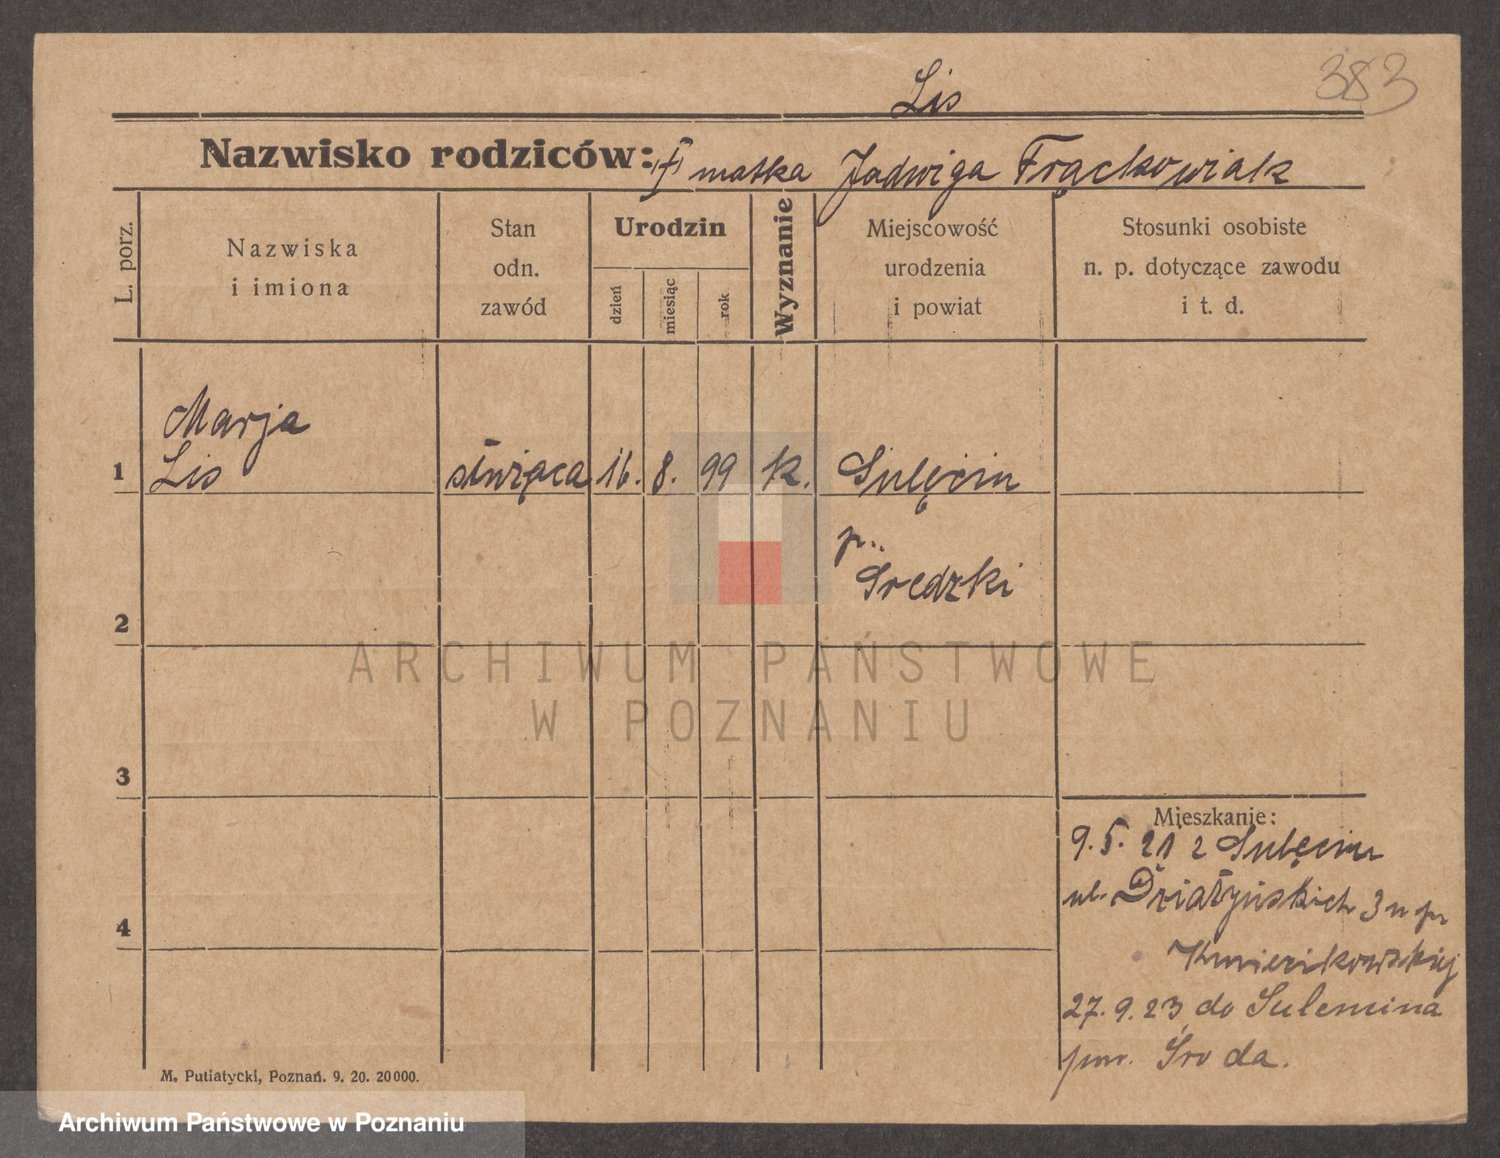 383
Lis
Nazwisko rodziców: matka Jadwiga Frąckowiak
L. porz.
Nazwiska
i imiona
Stan
odn.
zawód
Urodzin
dzień
miesiąc
rok
Wyznanie
Miejscowość
urodzenia
i powiat
Stosunki osobiste
n. p. dotyczące zawodu
i t. d.
Marja
1 Lis służąca 16. 8. 99 k. Sulęcin
p.
Sredzki
2
3
4
Mieszkanie:
9. 5. 21 z Sulęcin
ul. Działyńskich 3 u pr
27. 9. 23 do
pow. Środa.
M. Putiatycki, Poznań. 9. 20. 20000.
ARCHIWUM PAŃSTWOWE
W POZNANIU
Archiwum Państwowe w Poznaniu